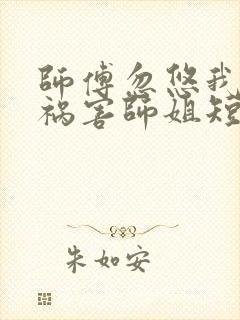 師傅忽悠我
祸害師姐短
朱如安